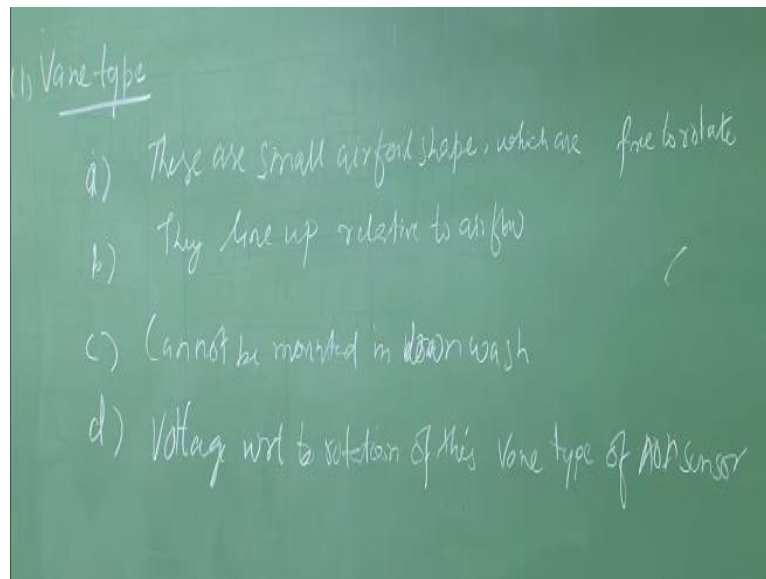 (1) Vane-type
a) These are small airfoil shape, which are free to rotate
b) They line up relative to airflow
c) Cannot be mounted in down wash
d) Voltag wrt to rotation of this Vane type of AOA sensor